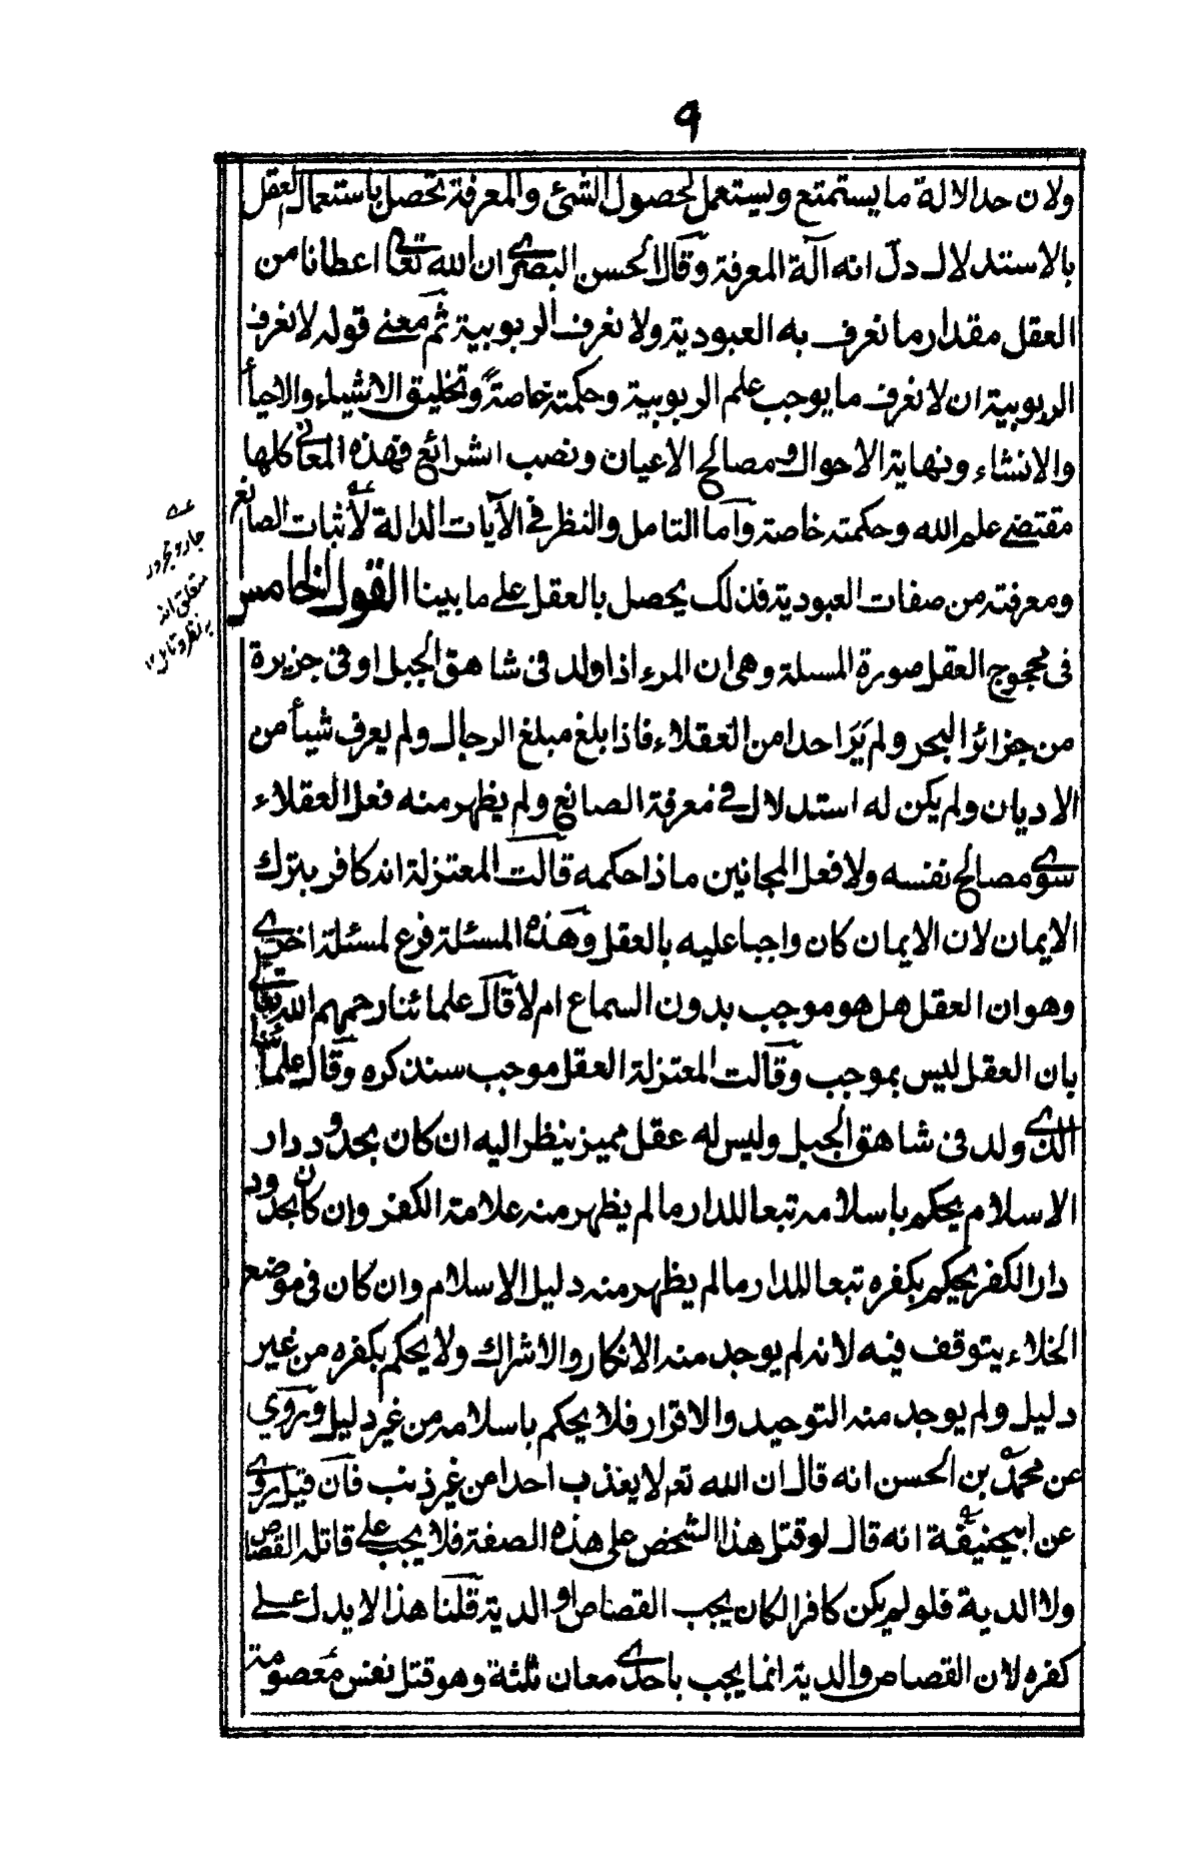 ٩
ولان حد الالة ما يستمتع ويستعمل لحصول الشئ والمعرفة تحصل باستعمال العقل
بالاستدلال دل انه آلة المعرفة وقال الحسن البصري ان الله تعالى اعطانا من
العقل مقدار ما نعرف به العبودية ولا نعرف الربوبية ثم معنى قوله لا نعرف
الربوبية ان لا نعرف ما يوجب علم الربوبية وحكمته خاصة وتخليق الاشياء والاحيأ
والانشاء ونهاية الاحوال ومصالح الاعيان ونصب الشرائع فهذه المعانى كلها
مقتضى علم الله وحكمته خاصة واما التامل والنظر فى الآيات الدالة لأثبات الصانع
ومعرفته من صفات العبودية فذلك يحصل بالعقل على ما بينا القول الخامس
فى محجوج العقل صورة المسلة وهى ان المرء اذا ولد فى شاهق الجبل او فى جزيرة
من جزائر البحر ولم يَرَ احدا من العقلاء فاذا بلغ مبلغ الرجال ولم يعرف شيأ من
الاديان ولم يكن له استدلال فى معرفة الصانع ولم يظهر منه فعل العقلاء
سوى مصالح نفسه ولا فعل المجانين ماذا حكمه قالت المعتزلة انه كافر بترك
الايمان لان الايمان كان واجبا عليه بالعقل وهذه المسئلة فرع لمسئلة اخرى
وهو ان العقل هل هو موجب بدون السماع ام لا قال علمائنا رحمهم الله تعالى
بان العقل ليس بموجب وقالت المعتزلة العقل موجب سنذكره وقال علمائنا
الذى ولد فى شاهق الجبل وليس له عقل مميز ينظر اليه ان كان بحدود دار
الاسلام يحكم باسلامه تبعا للدار ما لم يظهر منه علامة الكفر وان كان بحدود
دار الكفر يحكم بكفره تبعا للدار ما لم يظهر منه دليل الاسلام وان كان فى موضع
الخلاء يتوقف فيه لانه لم يوجد منه الانكار والاشراك ولا يحكم بكفره من غير
دليل ولم يوجد منه التوحيد والاقرار فلا يحكم باسلامه من غير دليل وروي
عن محمد بن الحسن انه قال ان الله تع لا يعذب احدا من غير ذنب فان قيل روى
عن ابيحنيفة انه قال لو قتل هذا الشخص على هذه الصفة فلا يجب على قاتله القصاص
ولا الدية فلو لم يكن كافرا لكان يجب القصاص او الدية قلنا هذا لا يدل على
كفره لان القصاص والدية انما يجب باحدى معان ثلثة وهو قتل نفس معصومة
عــه
جار ومجرور
متعلق اند
بہ نظر و تامل ١٢